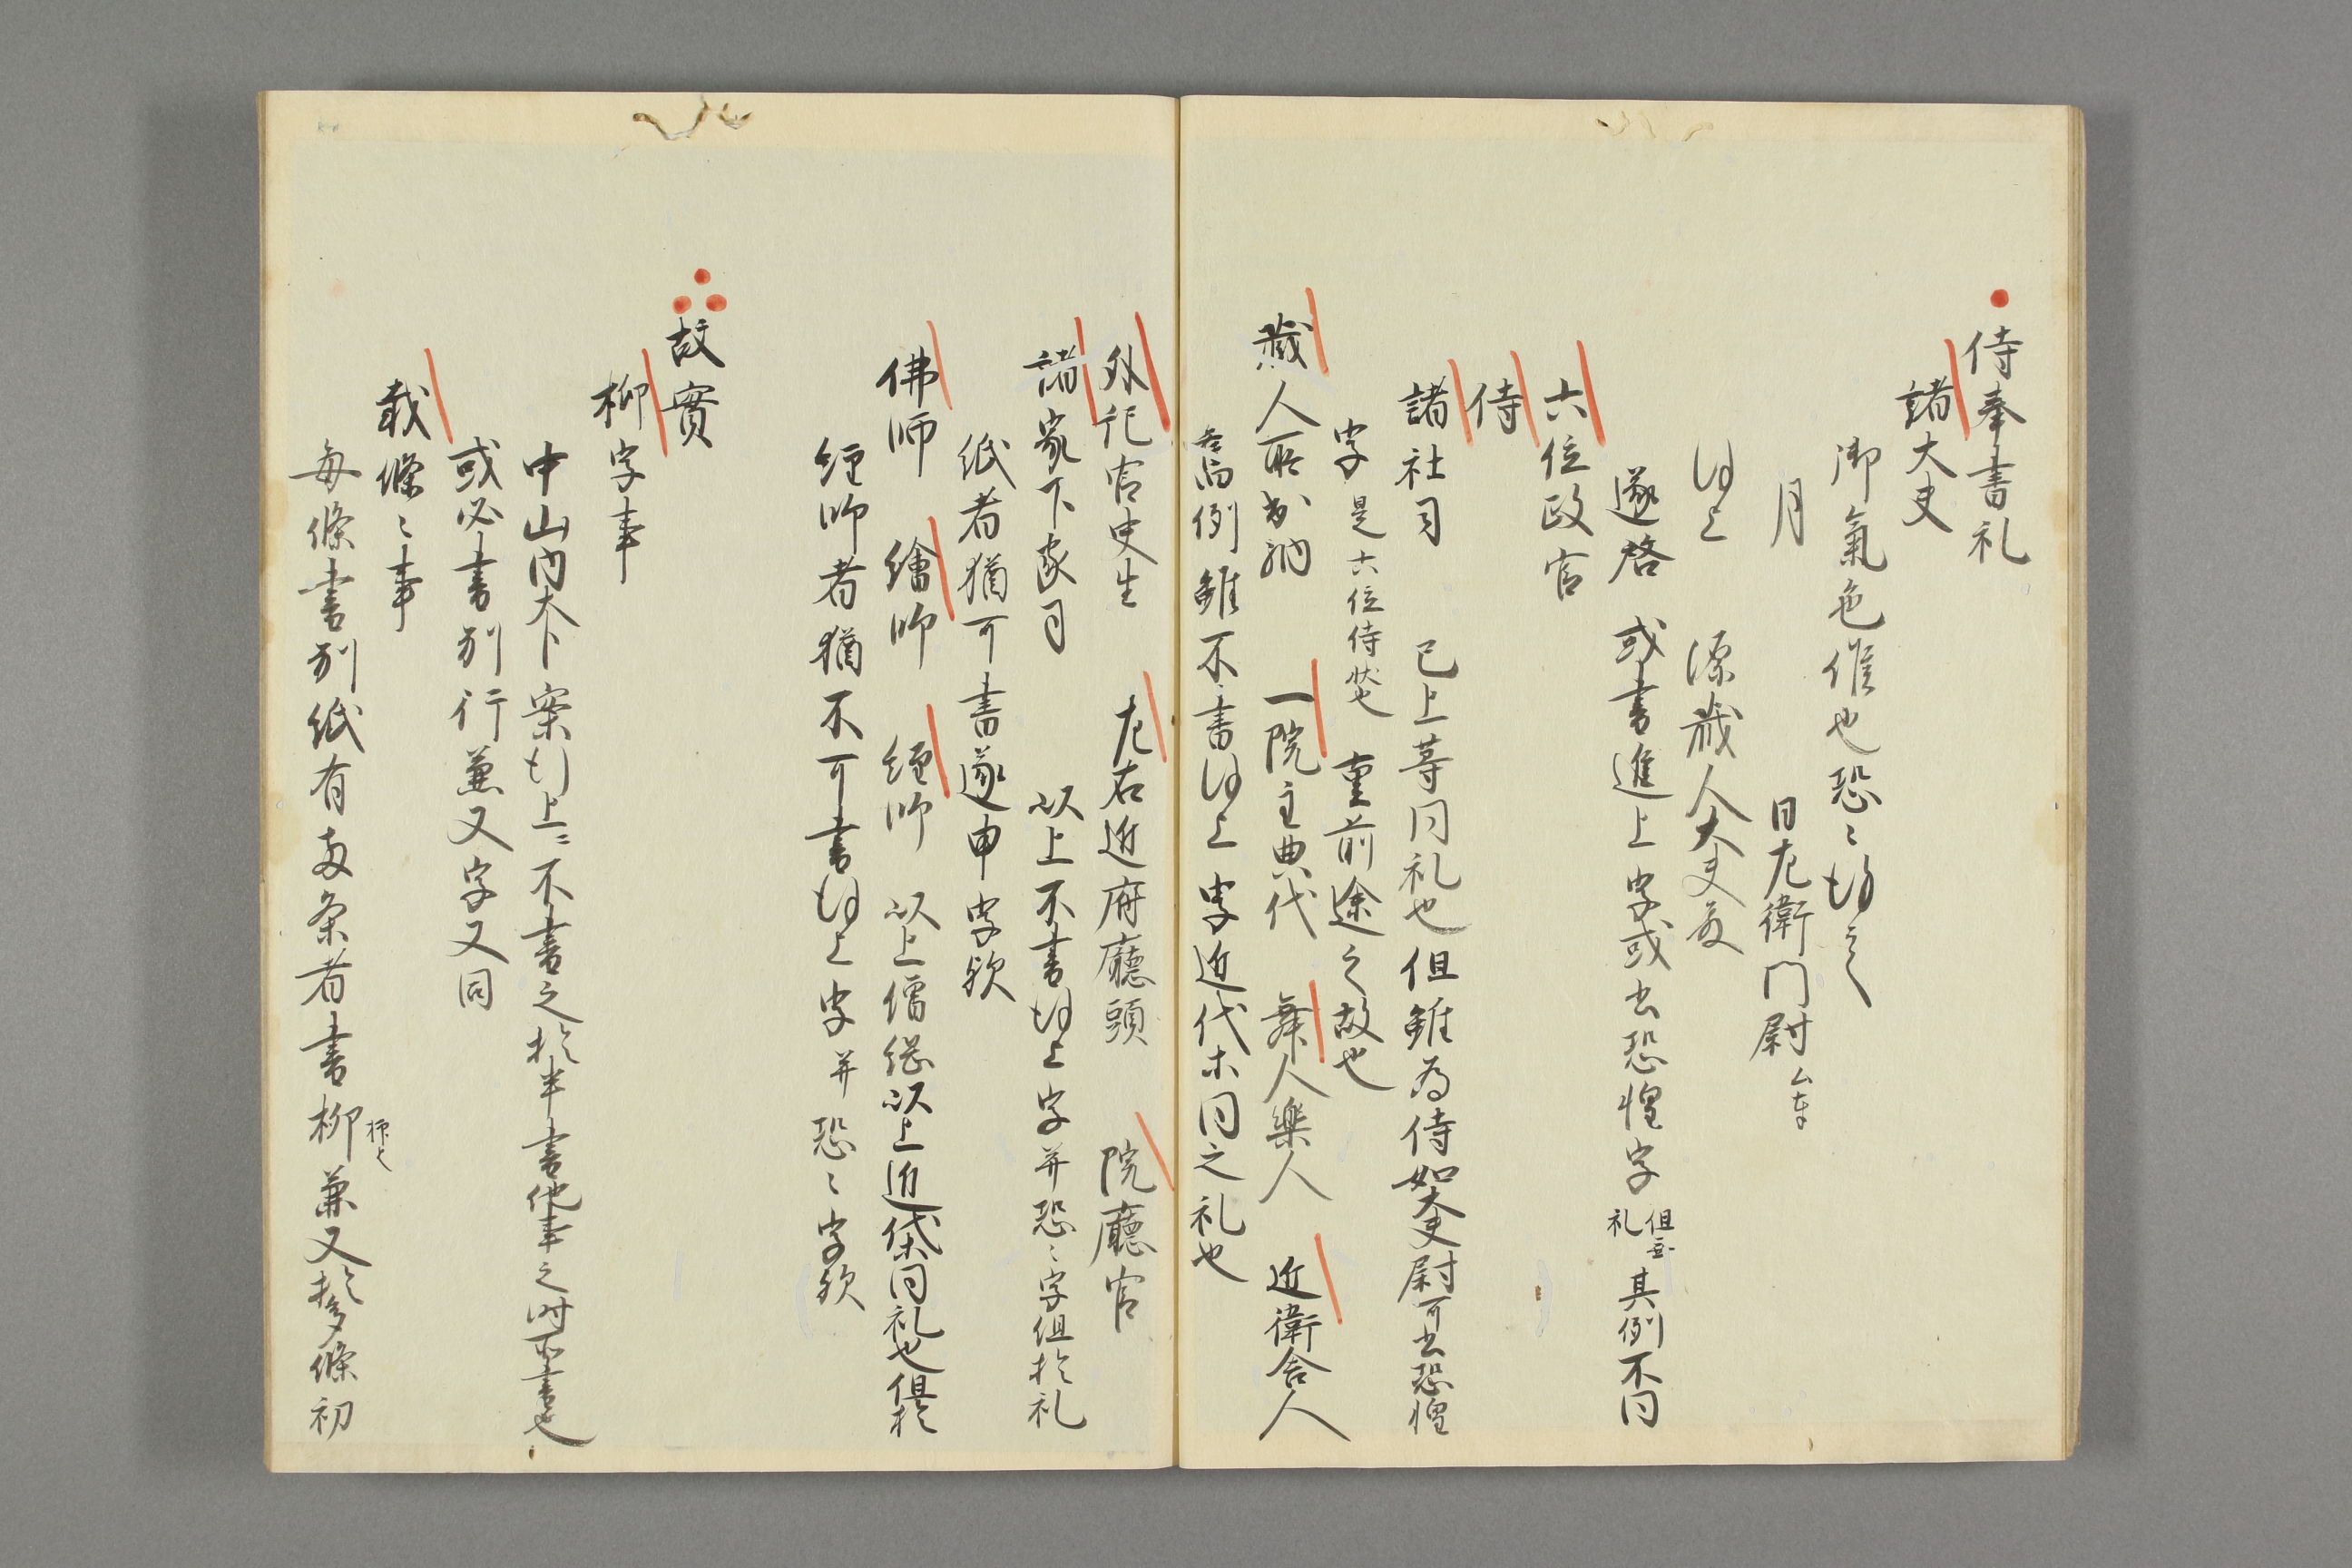 侍奉書礼
諸大夫
御氣色候也恐〻謹言
月　日左衛門尉ム奉
謹上　源蔵人大夫殿
逐啓　或書進上字或書恐惶字但無礼其例不同
六位政官
侍
諸社司　已上等同礼也但雖為侍如大夫尉可書恐惶
字是六位侍状也　重前途之故也
蔵人所出納　一院主典代　舞人樂人　近衛舎人
舊例雖不書謹上字近代未同之礼也
外記官史生　左右近府廳頭　院廳官
諸家下家司　以上不書謹上字并恐〻字但於礼
紙者猶可書逐申字歟
佛師　繪師　經師　以上僧綱以上近代同礼也但於
經師者猶不可書謹上字并恐〻字歟
故實
抑字事
中山内大臣案言上ニ不書之於半書他事之時不書也
或必書別行兼又字又同
載條〻事
毎條書別紙有两条者書抑兼又於多條初